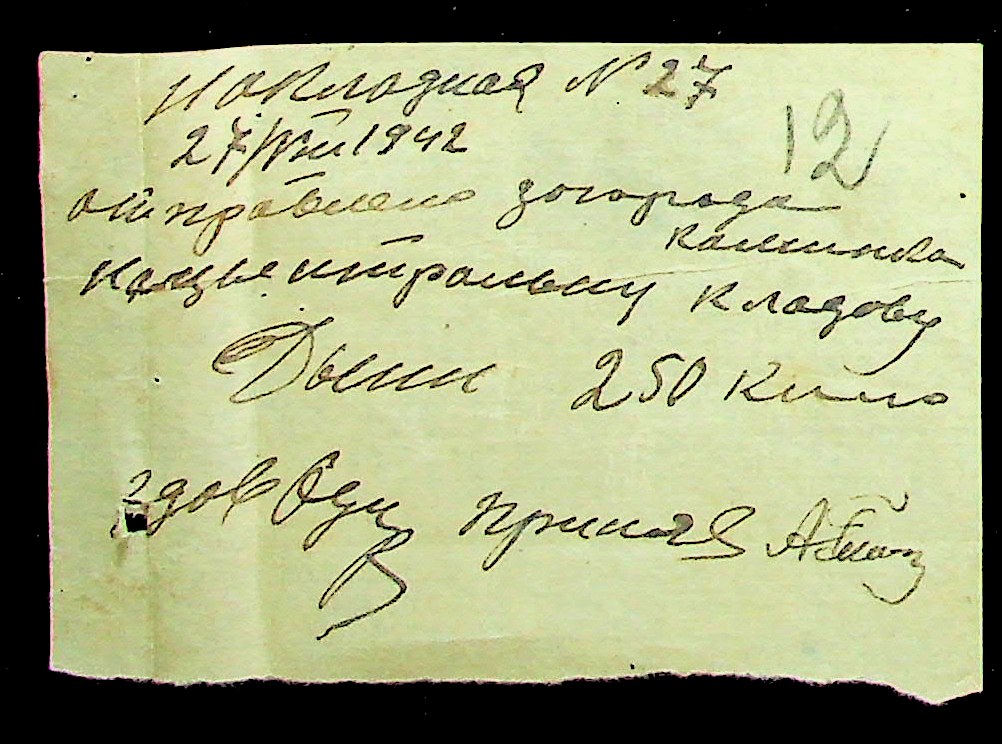 Накладная N 27
27/VIII 1942
12
отправлено зогорода
калинова
нацыентральну кладову
Дыни 250 кило
здав принял